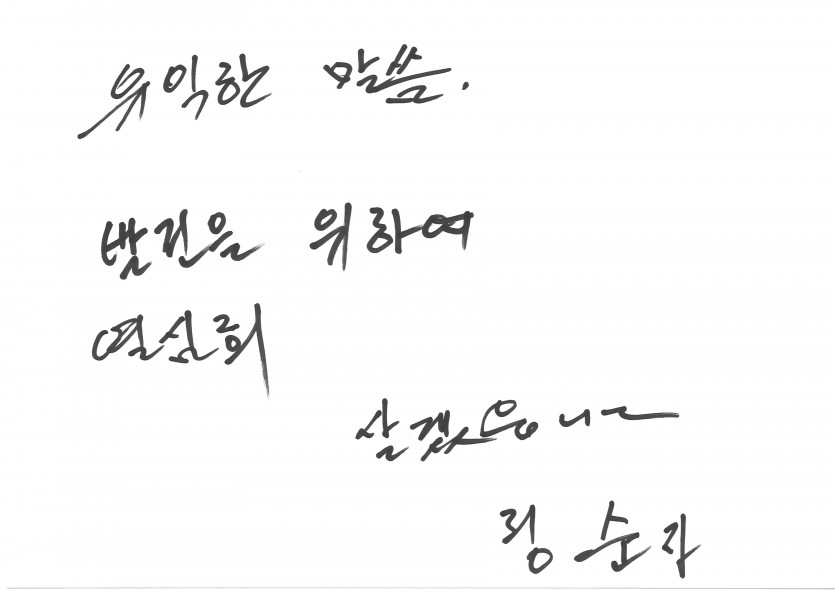 유익한 말씀.
발전을 위하여
열심히
살겠읍니다
정순자